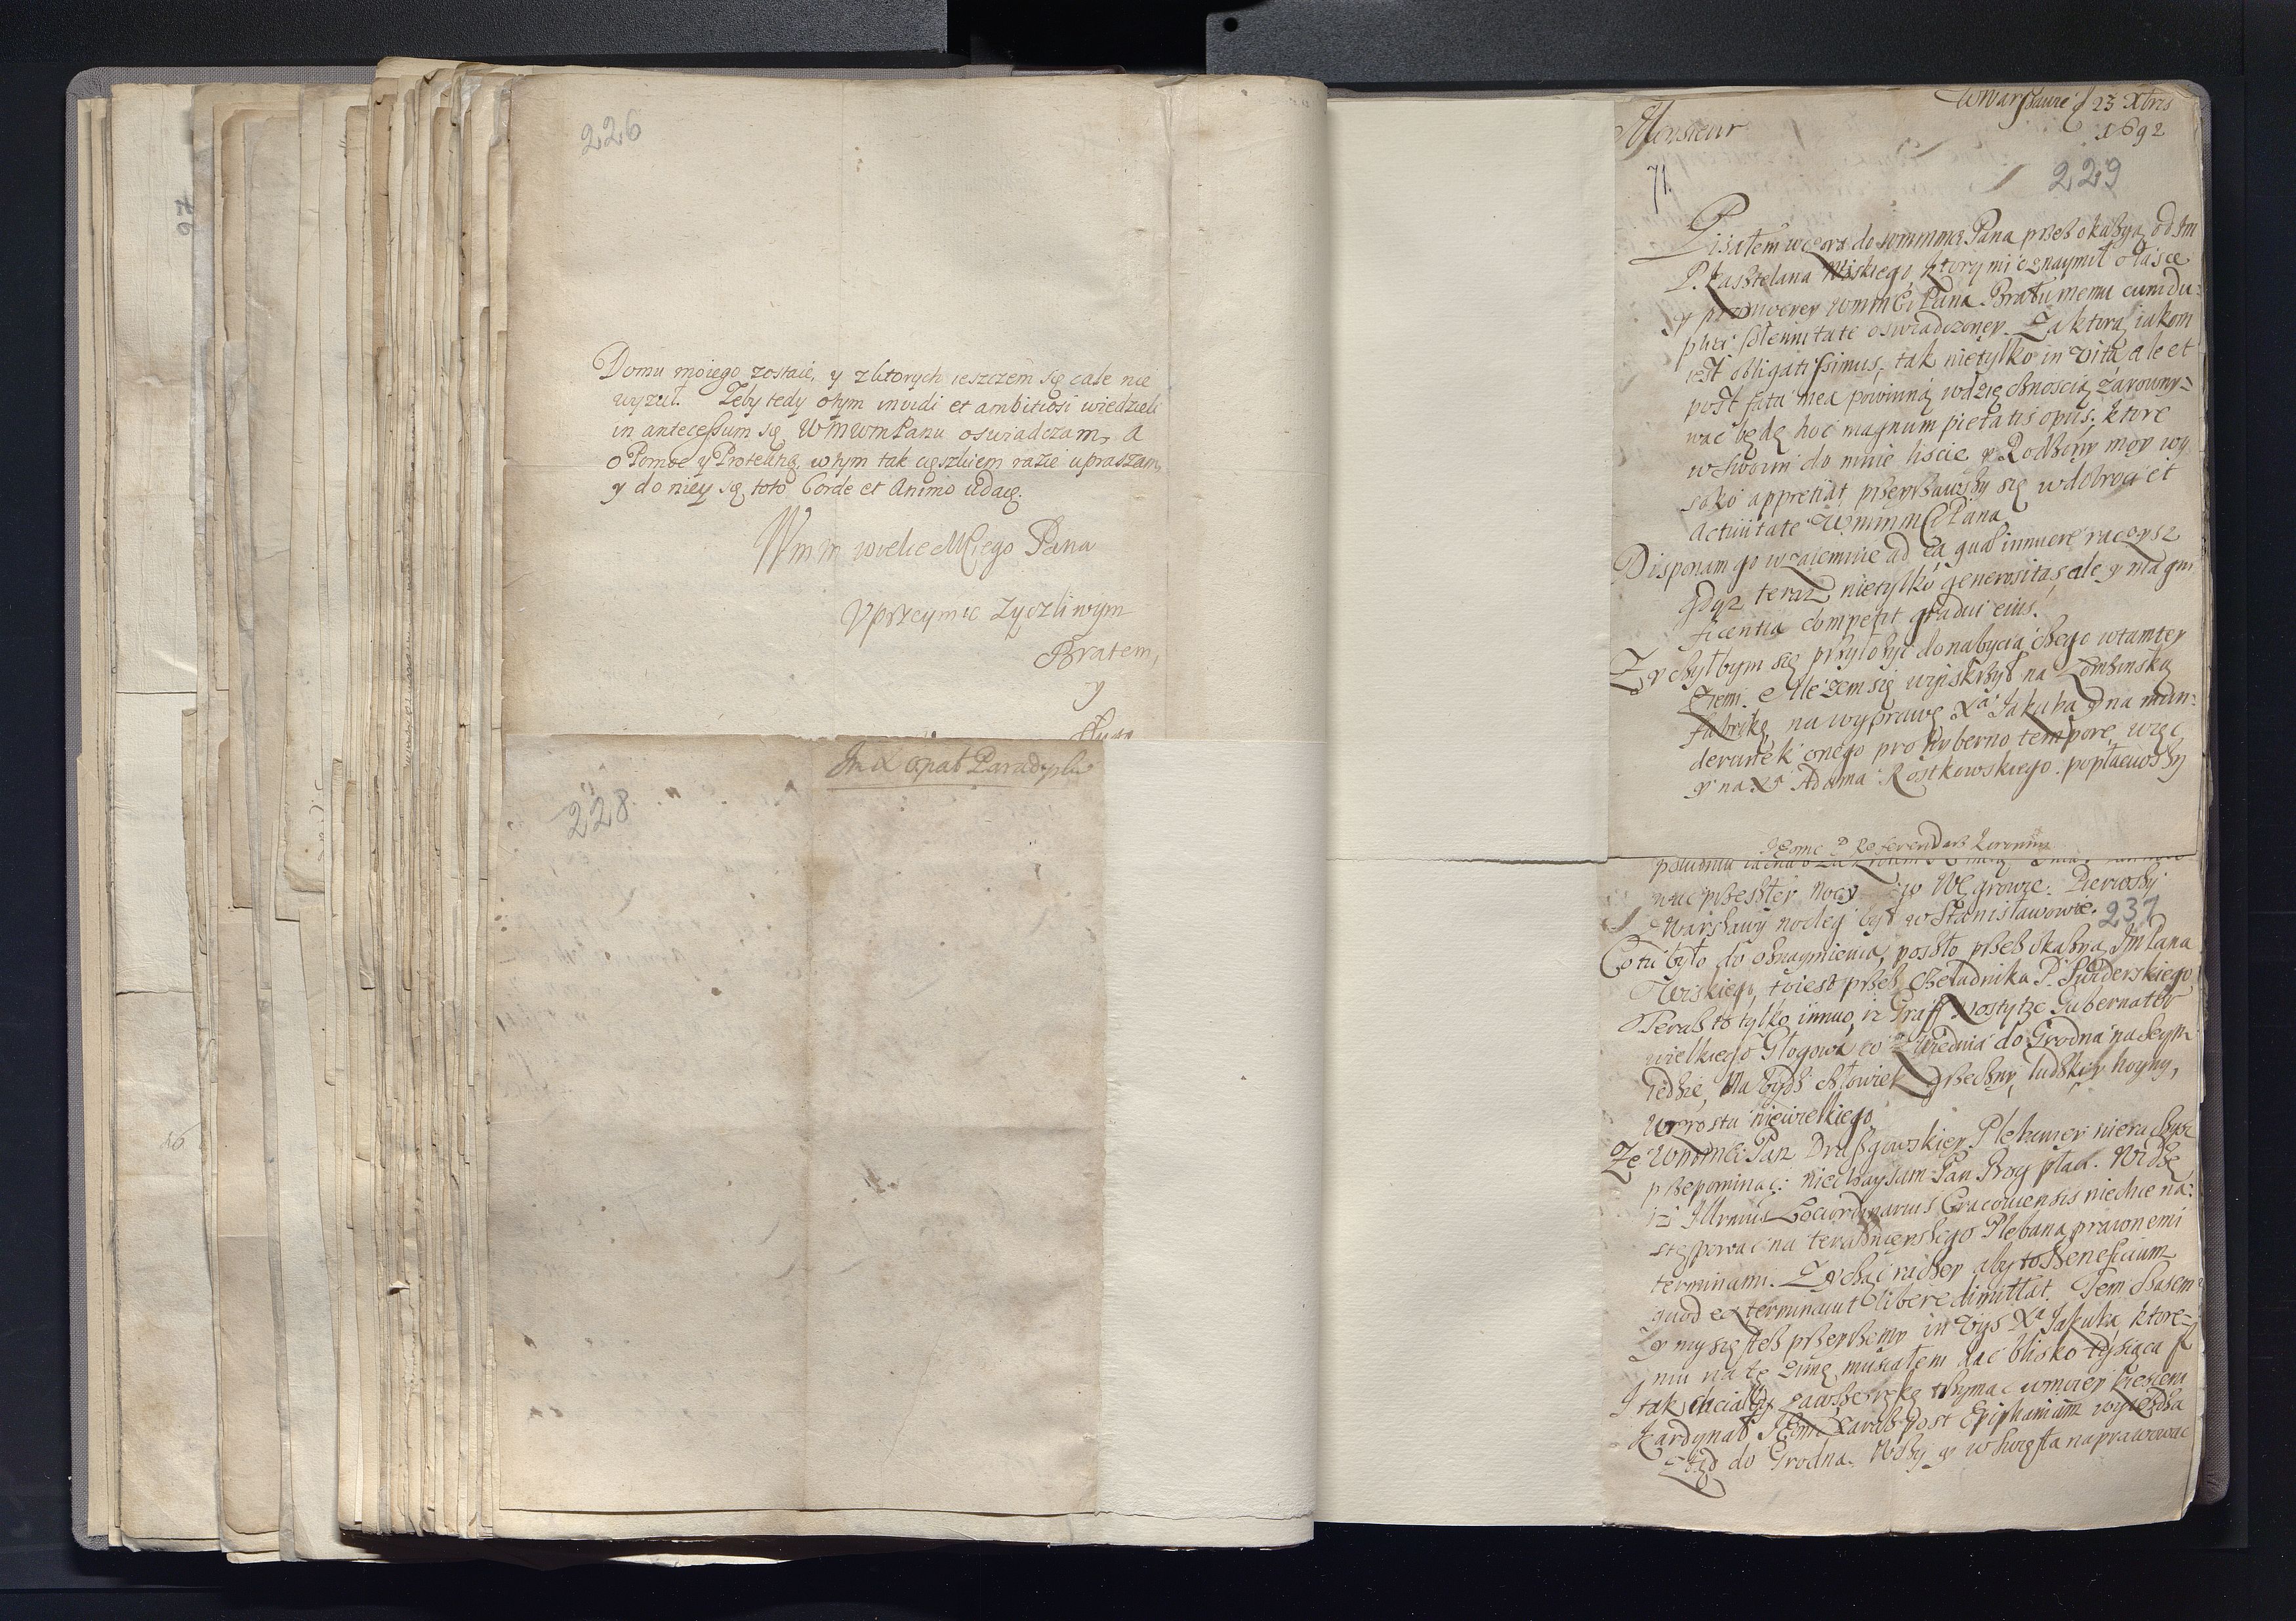 226
Domu mojego zostaie, y z ktorych ieszczem się cale nie
wyzuł. Zeby tedy otym invidi et ambitiosi wiedzieli
in antecessum się WMWMPanu oswiadczam, a
o Pomoc y Protekcyą wtym tak cięszkiem razie upraszam,
y do niey się toto Corde et Animo udaię.
Wmm wielce Mciego Pana
Uprzeymie Zyczliwym
Bratem,
y
Sługą
228
Wwarszawie d 23 Xbris
1692
Monsieur
71.
229
Pisałem wczora do wmmmci Pana przez okazyą od Im
P. Kasztelana Wiskiego, ktory mi oznaymił o łasce
y promocyey WmmCi Pana Bratu memu cum du-
plici solennitate oswiadczoney. Za ktorą iakom
iest obligatissimus, tak nietylko in vita ale et
post fata mea powinną wdzięcznoscią zarowny-
wac będę hoc magnum pietatis opus, ktore
w swoim do mnie liscie y Rodzony moy wy
soko appretiat przeyzawszy się w dobroci et
activitate WmmmCi Pana
Disponam go wzaiemnie ad ea quae innuere raczysz
gdyz teraz nietylko generositas ale y magni
ficentia competit gradui eius.
Zyczyłbym się przyłozyc do nabycia czego w tamtey
Ziemi. Ale zem się wyiskrzył na Zombinską
fabrykę, na wyprawę Xa Jakuba y na mun-
derunek onego pro hyberno tempore, więc
y na Xa Adama Rostkowskiego popłaciwszy
Jeomc P Referendarz Koronny
wac przeszłey nocy w Węgrowie. Pierwszy
Warszawy nocleg był w Stanisławowie.
231
Co tu było do oznaymienia, poszło przez okazyą Im Pana
Wiskiego, to iest przez Czeladnika P. Swiderskiego
Teraz to tylko innuo, iz Graff Nostytz Gubernator
wielkiego Głogowa z Wiednia do Grodna na Seym
iedzie, Ma bydz człowiek grzeczny, ludzki y hoyny,
Wzrostu niewielkiego
Ze WmmmCi Pan Druzgowskiey Plebaniey nie raczysz
przepominac: niechay sam Pan Bog płaci. Widzę
iz Illrmus Loci ordinarius Cracoviensis niechce na-
stępowac na teraznieyszego Plebana prawnemi
terminami. Zyczac raczey aby to Beneficium
quod exterminavit libere dimittat. Tem czasem
y my się tez przeyrzemy in vires Xa Jakuba, ktore-
mu na tę zimę musiałem dac blisko tysiąca fl
I tak chciałby zawsze rękę trzymac w moiey kieszeni
Kardynał JEomc zaraz post Epiphaniam wyiezdza
ztąd do Grodna. Wozy y w swięta naprawowac